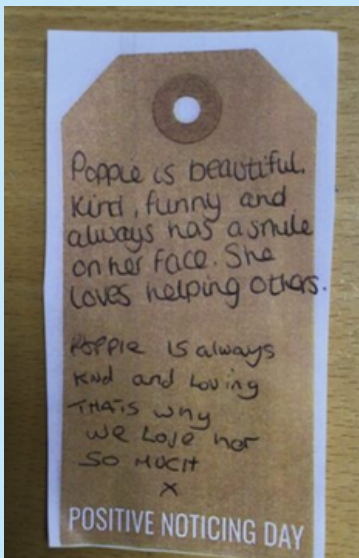 Poppie is beautiful.
Kind, funny and
always has a smile
on her face. She
loves helping others.
POPPIE IS always
KIND and Loving
THATS why
we Love her
SO MUCH
X
POSITIVE NOTICING DAY